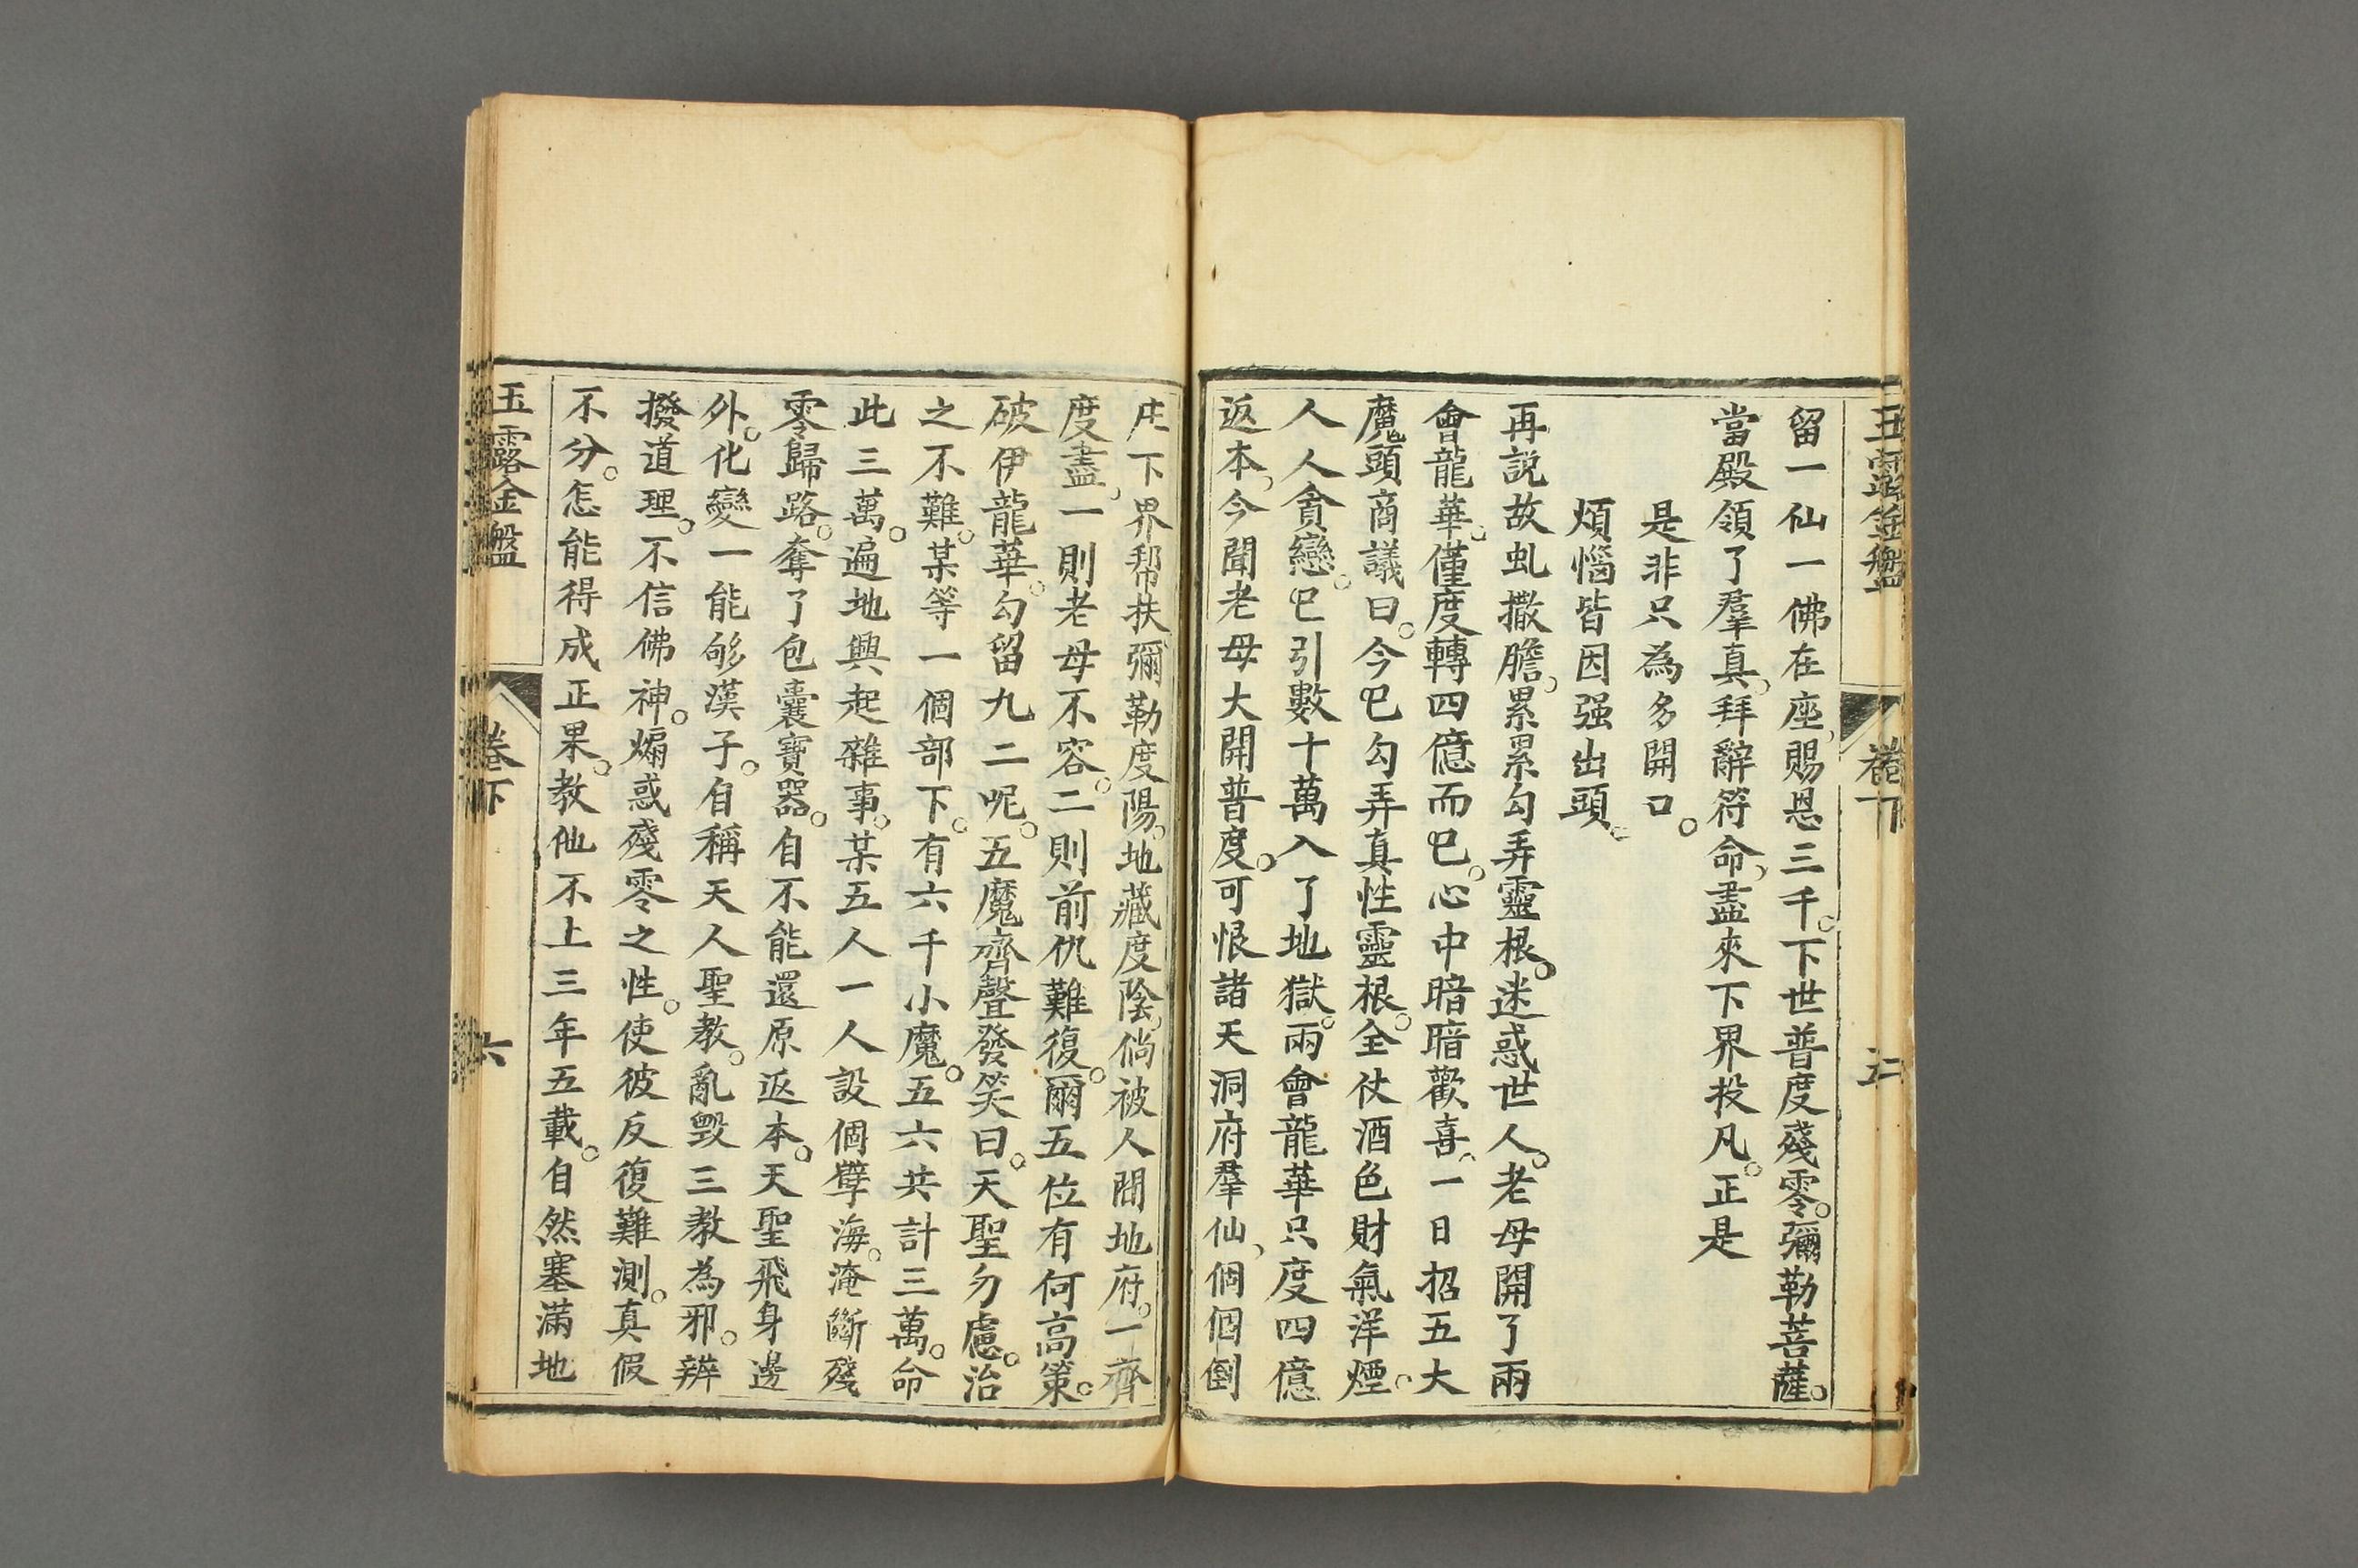 玉露金盤 卷下 五
留一仙一佛在座、賜恩三千。下世普度殘零。彌勒菩薩。
當殿領了羣真、拜辭符命、盡來下界投凡。正是
是非只為多開口。
煩惱皆因强出頭。
再説故虬撒膽、累累勾弄靈根。迷惑世人。老母開了兩
會龍華。僅度轉四億而巳。心中暗暗歡喜、一日招五大
魔頭商議曰。今巳勾弄真性靈根。全仗酒色財氣洋煙。
人人貪戀。巳引數十萬入了地獄。兩會龍華只度四億
返本、今聞老母大開普度。可恨諸天洞府羣仙、個個倒
庄下界幇扶彌勒度陽。地藏度陰、倘被人間地府。一齊
度盡、一則老母不容。二則前仇難復。爾五位有何高策。
破伊龍華。勾留九二呢。五魔齊聲發笑曰。天聖勿慮。治
之不難。某等一個部下。有六千小魔。五六共計三萬。命
此三萬。遍地興起雜事。某五人一人設個孽海。淹斷殘
零歸路。奪了包囊寶器。自不能還原返本。天聖飛身邊
外。化變一能够漢子。自稱天人聖教。亂毁三教為邪。辨
撥道理。不信佛神。煽惑殘零之性。使彼反復難測。真假
不分。怎能得成正果。教他不上三年五載。自然塞滿地
玉露金盤 卷下 六